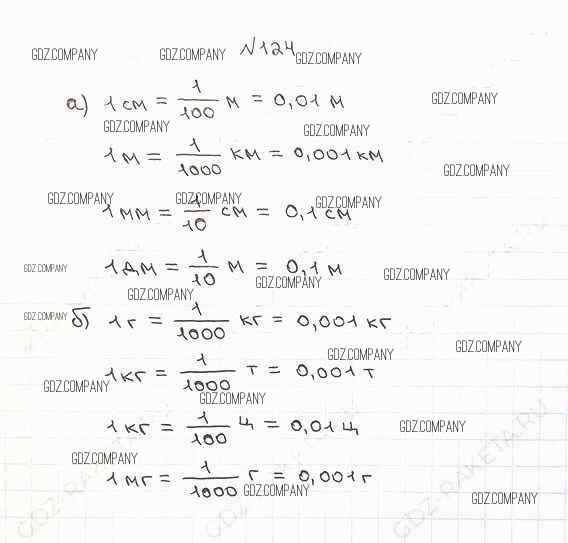 №124
GDZ.COMPANY GDZ.COMPANY GDZ.COMPANY
а) 1 см = 1/100 м = 0,01 м GDZ.COMPANY
GDZ.COMPANY GDZ.COMPANY
1 м = 1/1000 км = 0,001 км
GDZ.COMPANY
GDZ.COMPANY GDZ.COMPANY GDZ.COMPANY
1 мм = 1/10 см = 0,1 см
1 дм = 1/10 м = 0,1 м
GDZ.COMPANY GDZ.COMPANY GDZ.COMPANY
GDZ.COMPANY
GDZ.COMPANY
б) 1 г = 1/1000 кг = 0,001 кг
GDZ.COMPANY GDZ.COMPANY
1 кг = 1/1000 т = 0,001 т
GDZ.COMPANY GDZ.COMPANY
1 кг = 1/100 ц = 0,01 ц GDZ.COMPANY
GDZ.COMPANY
1 мг = 1/1000 г = 0,001 г
GDZ.COMPANY GDZ.COMPANY
GDZ-RAKETA.RU